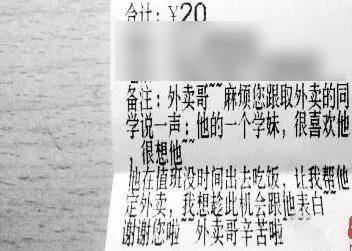 合计: ¥20
备注: 外卖哥~~麻烦您跟取外卖的同
学说一声: 他的一个学妹, 很喜欢他
, 很想他~~
他在值班没时间出去吃饭, 让我帮他
定外卖, 我想趁此机会跟他表白~~
谢谢您啦~~外卖哥辛苦啦